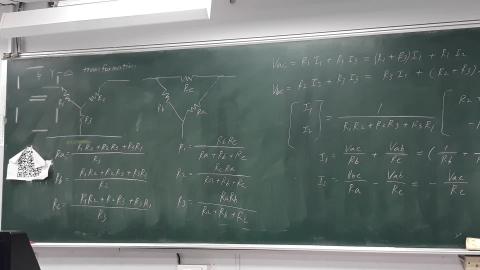 Y transformation
R1
R2
R3
Rc
Rb
Ra
Ra = R1R2 + R2R3 + R3R1 / R1
Rb = R1R2 + R2R3 + R3R1 / R2
Rc = R1R2 + R2R3 + R3R1 / R3
R1 = RbRc / Ra + Rb + Rc
R2 = RcRa / Ra + Rb + Rc
R3 = RaRb / Ra + Rb + Rc
Vac = R1 I1 + R3 I3 = (R1 + R3) I1 + R3 I2
Vbc = R2 I2 + R3 I3 = R3 I1 + (R2 + R3)
[ I1 I2 ] = 1 / R1R2 + R2R3 + R3R1 [ R2 +
-R
I1 = Vac / Rb + Vab / Rc = ( 1 / Rb +
I2 = Vbc / Ra - Vab / Rc = - Vac / Rc